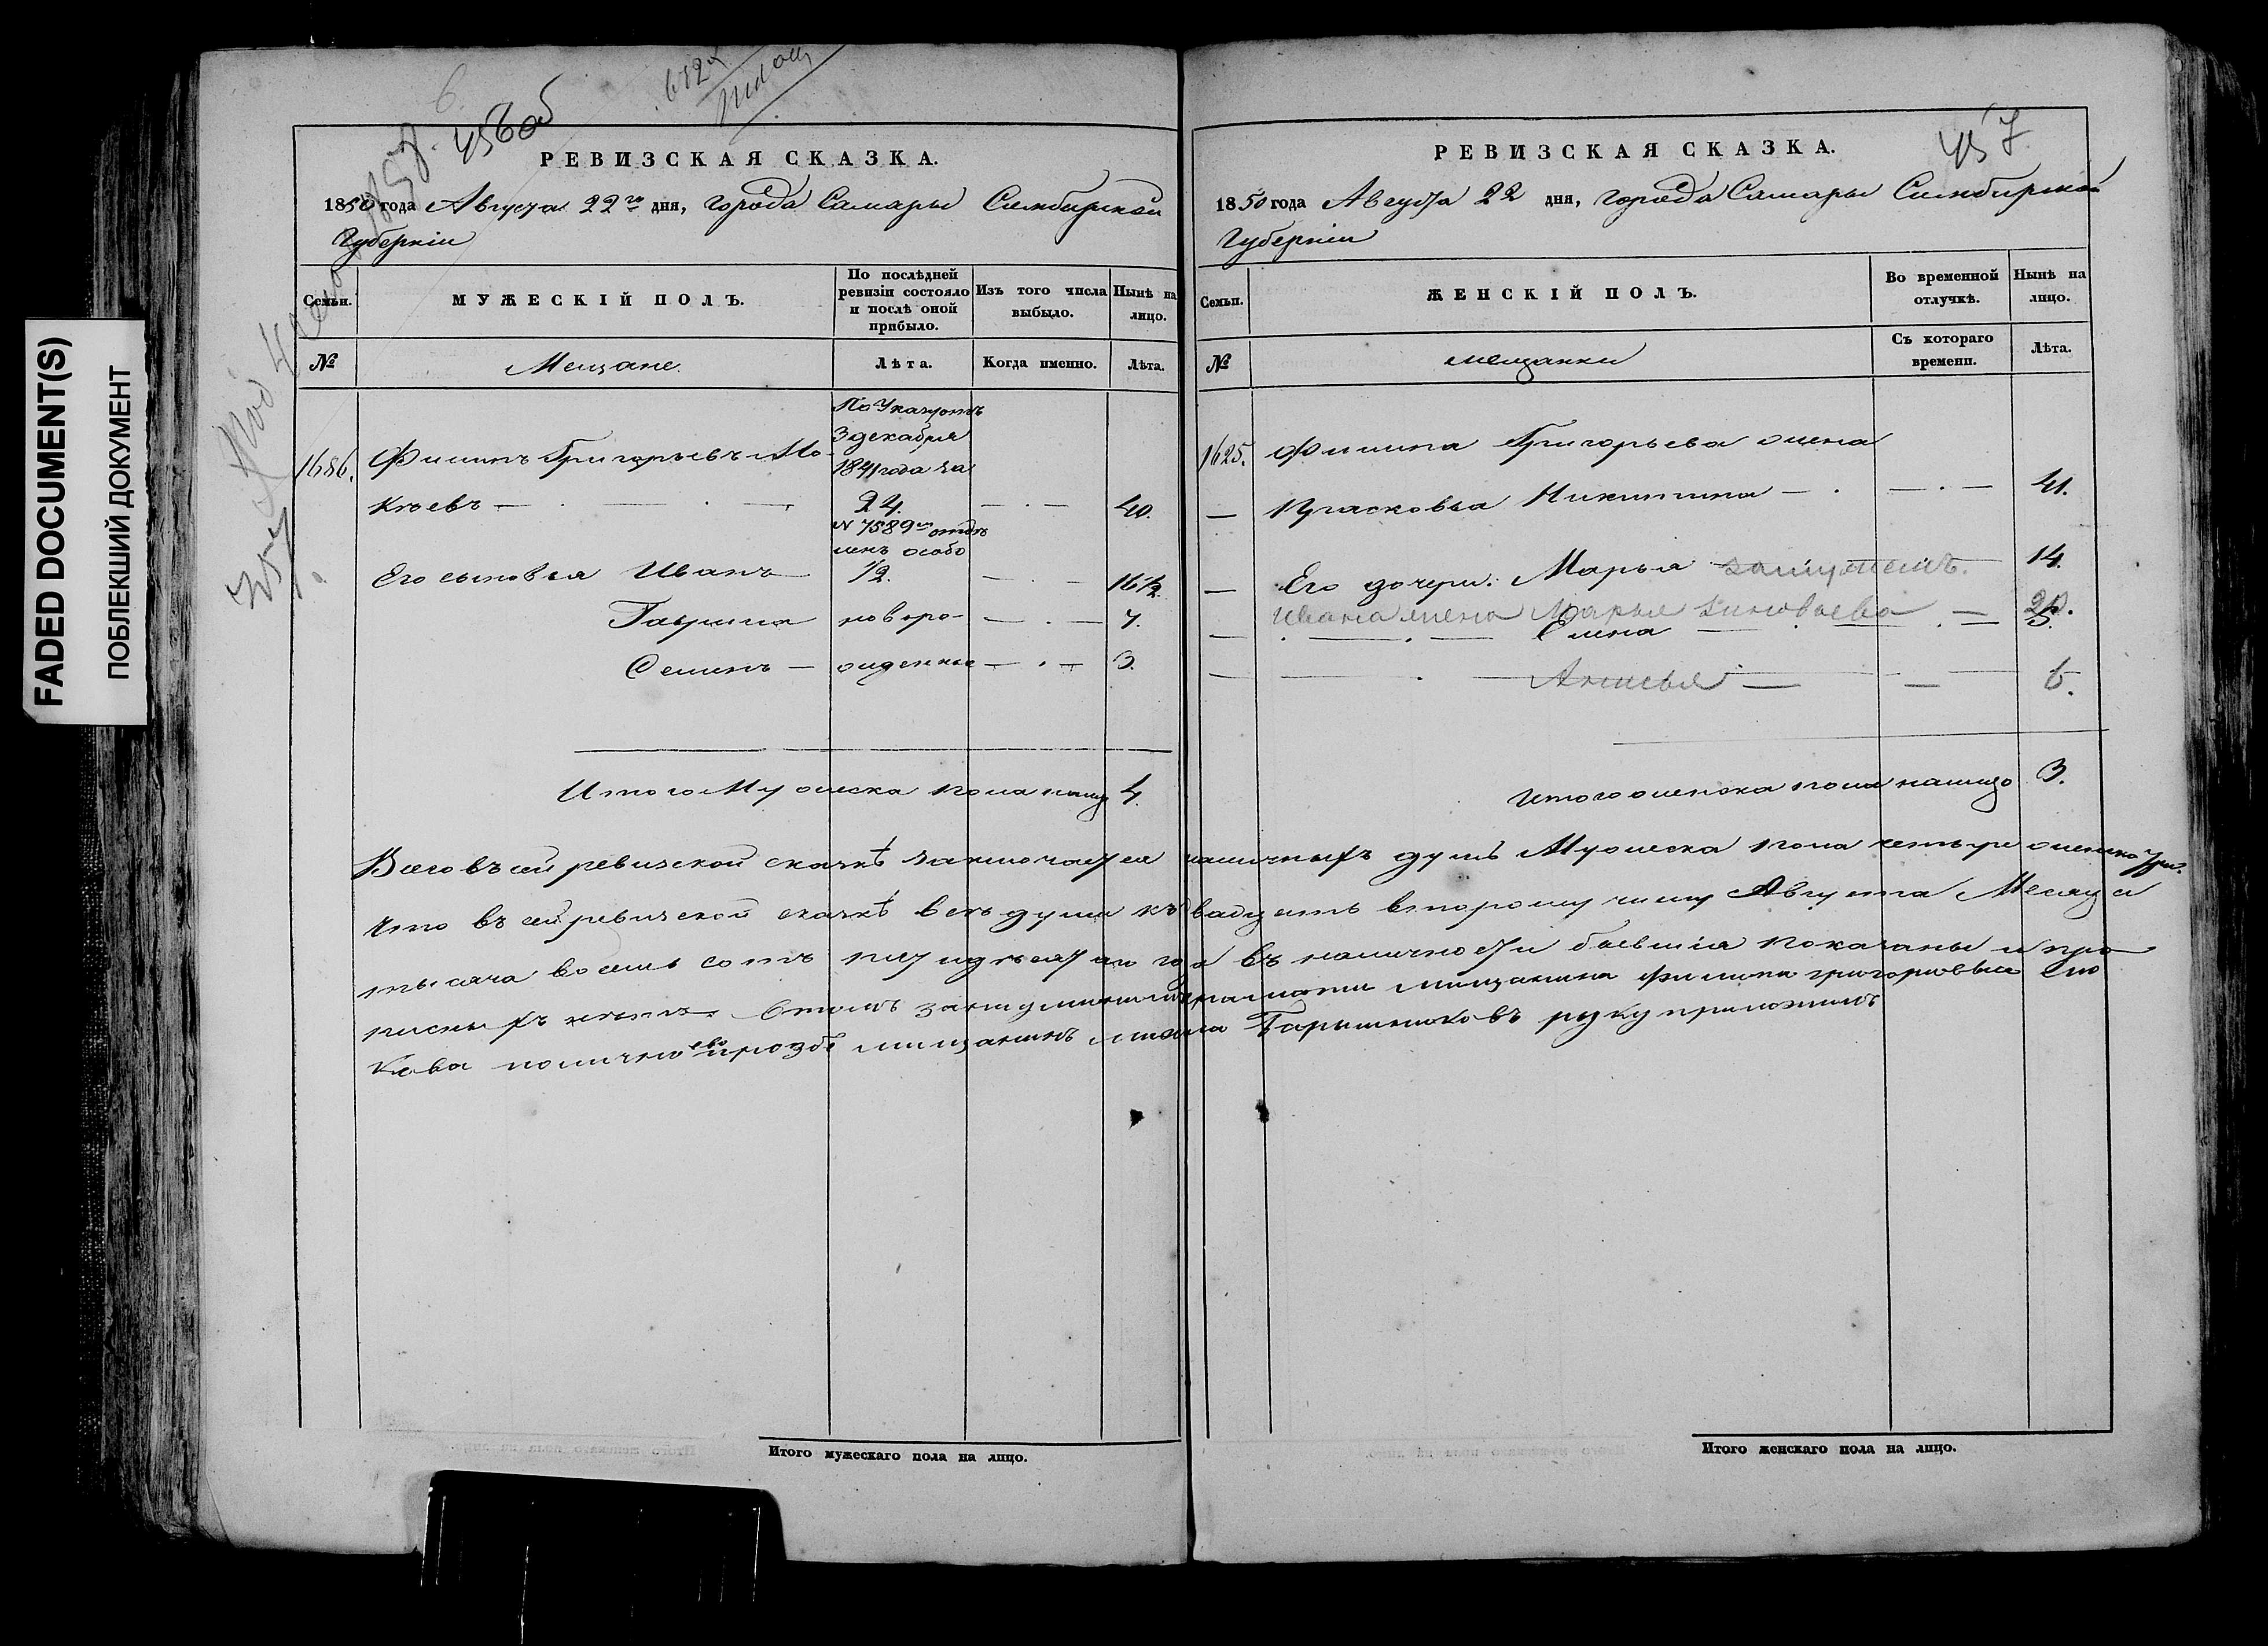 FADED DOCUMENT(S)
ПОБЛЕКШИЙ ДОКУМЕНТ
456об
РЕВИЗСКАЯ СКАЗКА.
1850 года Августа 22го дня, города Самары Симбирской
Губернiи
Семьи.
МУЖЕСКIЙ ПОЛЪ.
По послѣдней ревизiи состояло и послѣ оной прибыло.
Изъ того числа выбыло.
Нынѣ на лицо.
№
Мещане
Лѣта.
Когда именно.
Лѣта.
По Указу отъ
3 декабря
1841 года за
1686. Филипъ Григорьевъ Мо-
кѣевъ 24. 40.
N 7589м отдѣ
ленъ особо
Его сыновья Иванъ 1/2. 16 1/2.
Гаврила новоро- 7.
Семенъ жденные 3.
Итого Мужеска пола налицо 4.
457
РЕВИЗСКАЯ СКАЗКА.
1850 года Августа 22 дня, города Самары Симбирской
Губернiи
Семьи.
ЖЕНСКIЙ ПОЛЪ.
Во временной отлучкѣ.
Нынѣ на лицо.
№
мещанки
Съ котораго времени.
Лѣта.
1625. Филипа Григорьева жена
Прасковья Никитина 41.
Его дочери: Марья замужемъ. 14.
Ивана жена Марья Зиновьева 20.
Елена
6.
Итого женска пола налицо 3.
Всего въ сей ревизской сказкѣ заключается наличныхъ душъ Мужеска пола четыре женска три.
Что въ сей ревизской сказкѣ всѣ души къ двадцать второму числу Августа Месяца
тысяча восемь сотъ пятидѣсятаго года въ наличности бывшiя показаны и про
писныхъ нѣтъ. Въ томъ за неумѣниемъ грамоти мещанина Филипа григорьева Мо
кева по лично ево прозбе мещанинъ руку приложилъ
Итого мужескаго пола на лицо.
Итого женскаго пола на лицо.